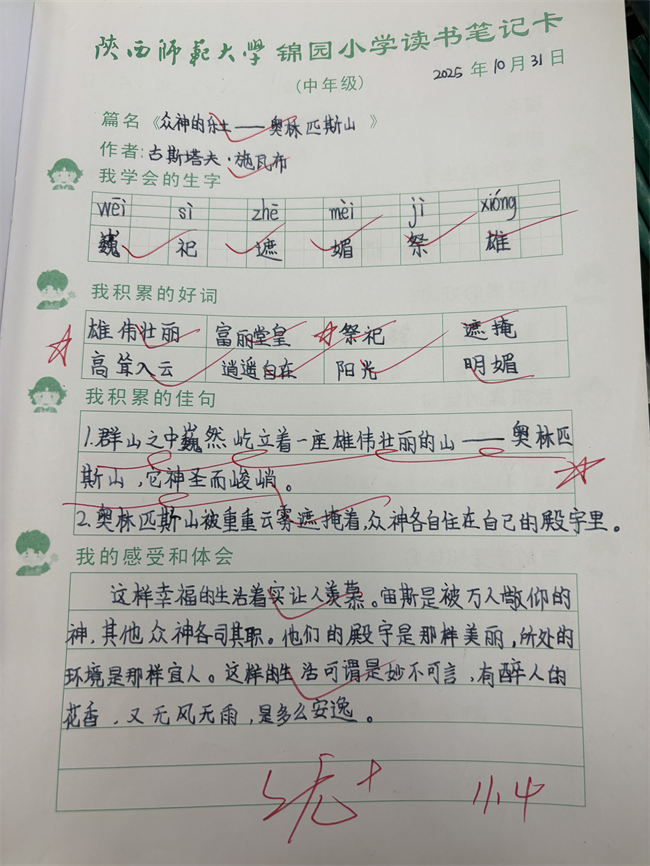 陕西师范大学 锦园小学读书笔记卡
(中年级)
2025年10月31日
篇名《众神的乐土——奥林匹斯山》
作者:古斯塔夫·施瓦布
我学会的生字
wēi sì zhē mèi jì xióng
巍 祀 遮 媚 祭 雄
我积累的好词
雄伟壮丽 富丽堂皇 祭祀 遮掩
高耸入云 逍遥自在 阳光 明媚
我积累的佳句
1.群山之中巍然屹立着一座雄伟壮丽的山——奥林匹
斯山,它神圣而峻峭。
2.奥林匹斯山被重重云雾遮掩着,众神各自住在自己的殿宇里。
我的感受和体会
这样幸福的生活着实让人羡慕。宙斯是被万人敬仰的
神,其他众神各司其职。他们的殿宇是那样美丽,所处的
环境是那样宜人。这样的生活可谓是妙不可言,有醉人的
花香,又无风无雨,是多么安逸。
11.4